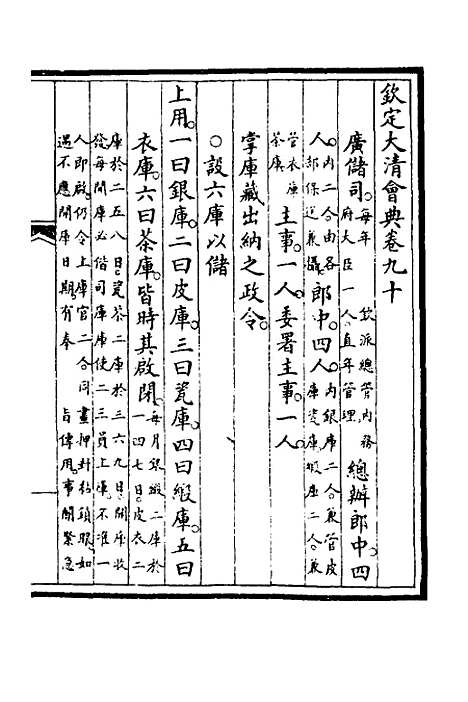 欽定大清會典卷九十
廣儲司。每年 欽派總管內務府大臣一人。直年管理 總辦郎中。四
人。內二人由各部保送兼攝。郎中。四人。內銀庫二人。兼管皮庫瓷庫。緞庫二人。兼
管衣庫茶庫 主事。一人。委署主事。一人
掌庫藏出納之政令。
○設六庫以儲
上用。一曰銀庫。二曰皮庫。三曰瓷庫。四曰緞庫。五曰
衣庫。六曰茶庫。皆時其啟閉。每月銀緞二庫於一四七日。皮衣二
庫於二五八日。瓷茶二庫於三六九日。開庫收發每開庫必偕司庫庫使二三員上庫。不准一
人即啟。仍令上庫官二人會同畫押封粘鎖眼。如遇不應開庫日期。有奉 旨傳用。事關緊急